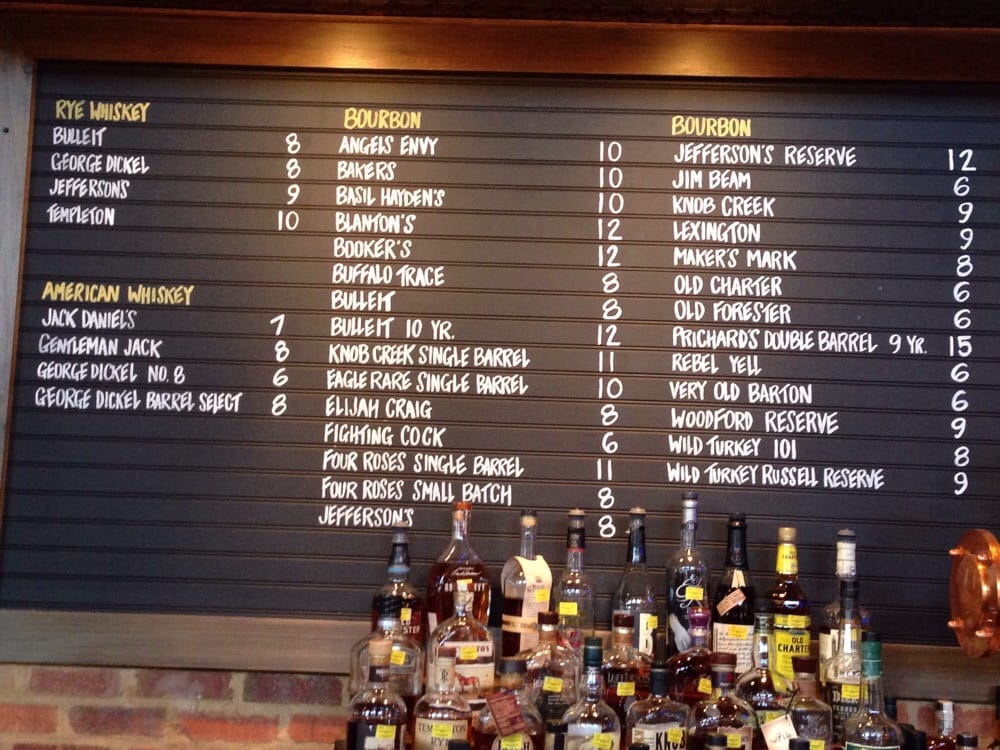 RYE WHISKEY
BULLEIT 8
GEORGE DICKEL 8
JEFFERSONS 9
TEMPLETON 10
AMERICAN WHISKEY
JACK DANIEL'S 7
GENTLEMAN JACK 8
GEORGE DICKEL NO. 8 6
GEORGE DICKEL BARREL SELECT 8
BOURBON
ANGELS ENVY 10
BAKERS 10
BASIL HAYDEN'S 10
BLANTON'S 12
BOOKER'S 12
BUFFALO TRACE 8
BULLEIT 8
BULLEIT 10 YR. 12
KNOB CREEK SINGLE BARREL 11
EAGLE RARE SINGLE BARREL 10
ELIJAH CRAIG 8
FIGHTING COCK 6
FOUR ROSES SINGLE BARREL 11
FOUR ROSES SMALL BATCH 8
JEFFERSON'S 8
BOURBON
JEFFERSON'S RESERVE 12
JIM BEAM 6
KNOB CREEK 9
LEXINGTON 9
MAKER'S MARK 8
OLD CHARTER 6
OLD FORESTER 6
PRICHARD'S DOUBLE BARREL 9 YR. 15
REBEL YELL 6
VERY OLD BARTON 6
WOODFORD RESERVE 9
WILD TURKEY 101 8
WILD TURKEY RUSSELL RESERVE 9
OLD
RYE